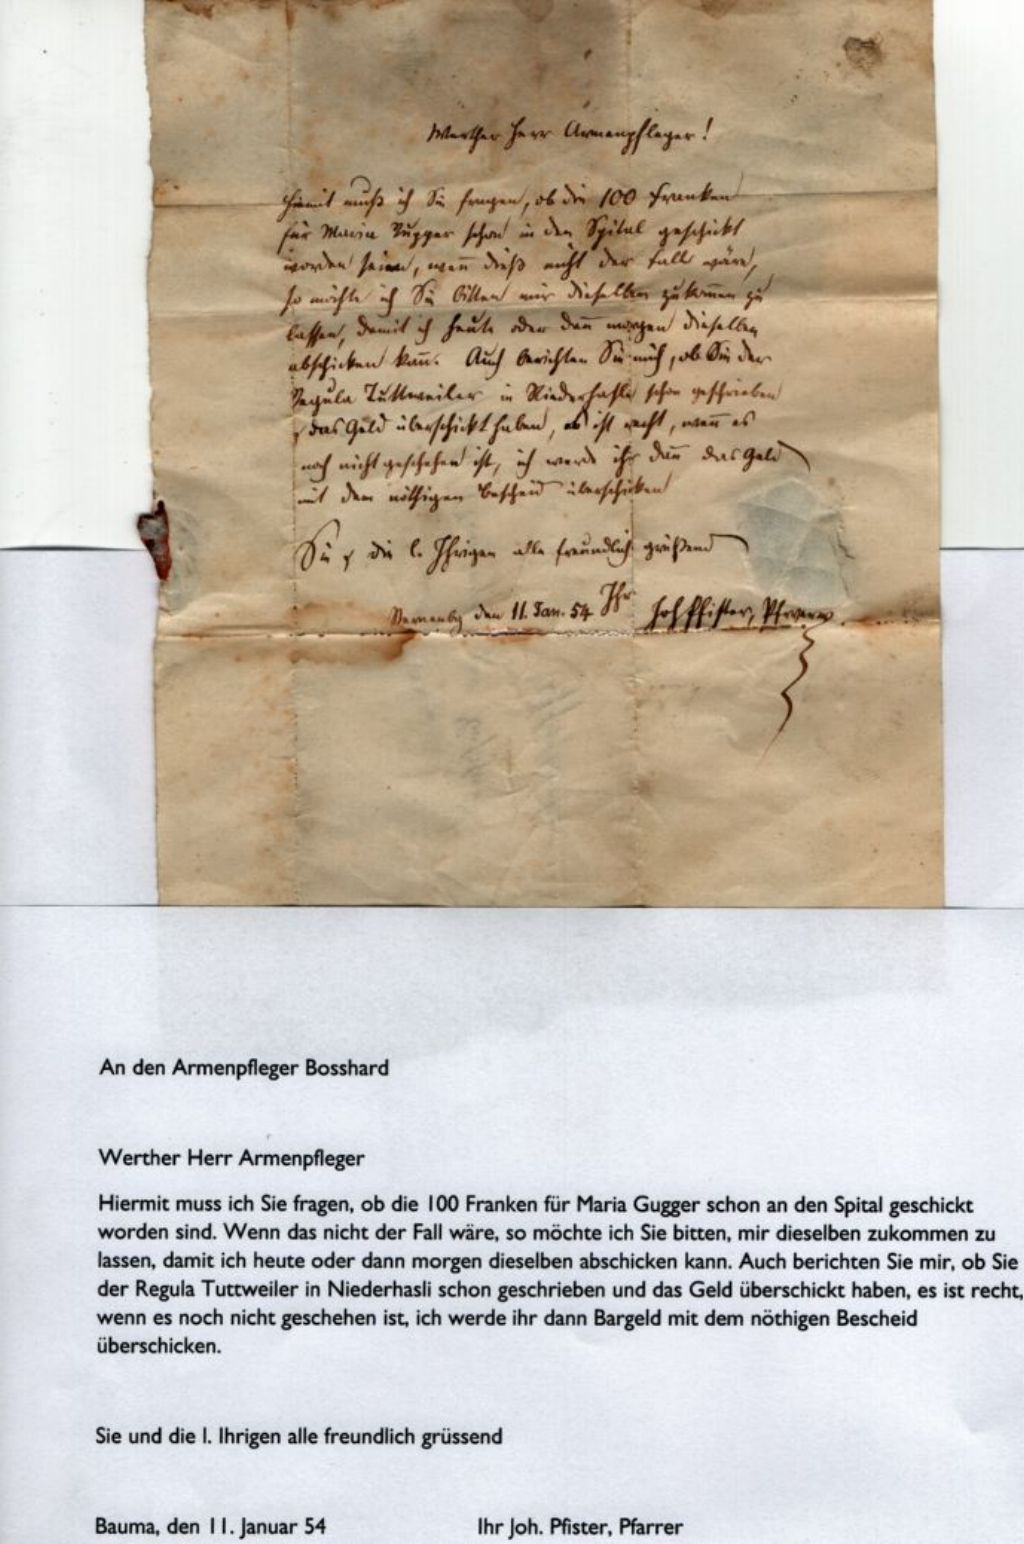 Werther Herr Armenpfleger!
Hiemit muß ich Sie fragen, ob die 100 Franken
für Maria schon in den Spital geschickt
worden seien, wenn dieß nicht der Fall wäre,
so möchte ich Sie bitten mir dieselben zukommen zu
lassen, damit ich heute oder dann morgen dieselben
abschicken kann. Auch berichten Sie mich, ob Sie der
Regula Tuttweiler in Niederhasle schon geschrieben
& das Geld überschickt haben, es ist recht, wenn es
noch nicht geschehen ist, ich werde ihr dann das Geld
mit dem nöthigen Bescheid überschicken
Sie & die l. Ihrigen alle freundlich grüßend
den 11. Jan. 54 Ihr Joh Pfister, Pfarrer
An den Armenpfleger Bosshard
Werther Herr Armenpfleger
Hiermit muss ich Sie fragen, ob die 100 Franken für Maria Gugger schon an den Spital geschickt
worden sind. Wenn das nicht der Fall wäre, so möchte ich Sie bitten, mir dieselben zukommen zu
lassen, damit ich heute oder dann morgen dieselben abschicken kann. Auch berichten Sie mir, ob Sie
der Regula Tuttweiler in Niederhasli schon geschrieben und das Geld überschickt haben, es ist recht,
wenn es noch nicht geschehen ist, ich werde ihr dann Bargeld mit dem nöthigen Bescheid
überschicken.
Sie und die l. Ihrigen alle freundlich grüssend
Bauma, den 11. Januar 54 Ihr Joh. Pfister, Pfarrer